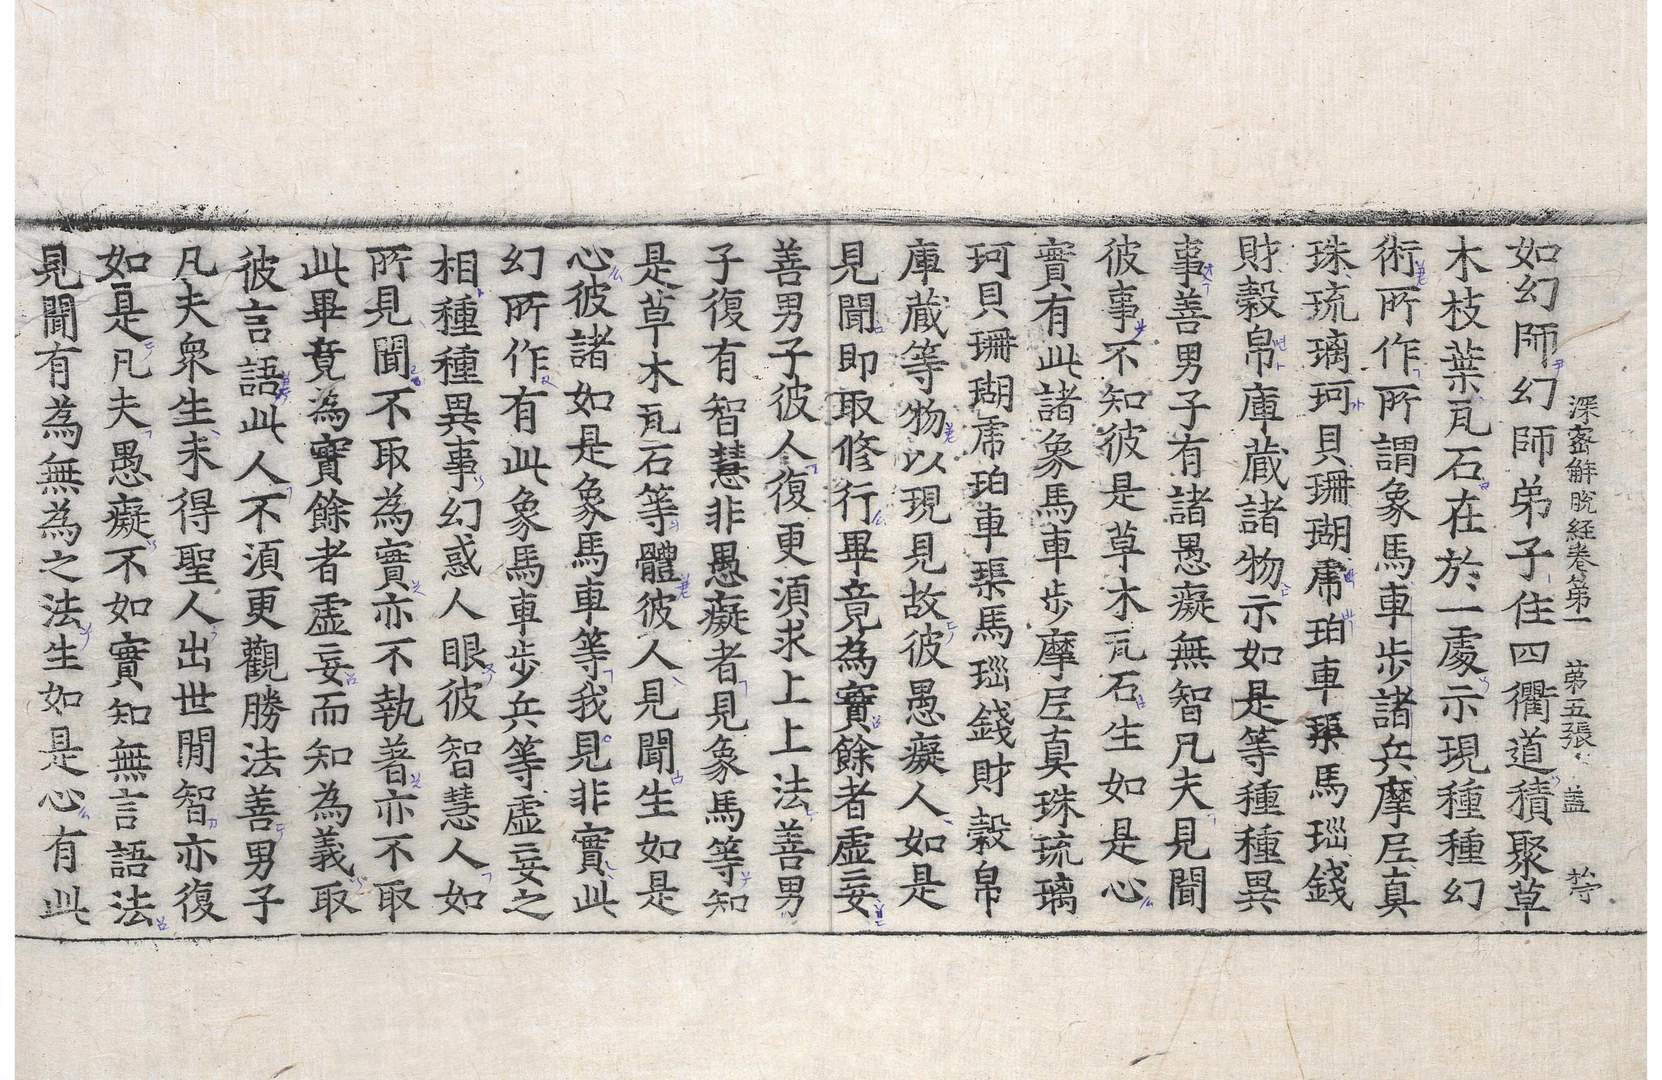 深密解脫経卷第一 第五張 盖
如幻師幻師弟子住四衢道積聚草
木枝葉瓦石在於一處示現種種幻
術所作所謂象馬車步諸兵摩尼真
珠琉璃珂貝珊瑚虎珀車𤦲馬瑙錢
財穀帛庫藏諸物示如是等種種異
事善男子有諸愚癡無智凡夫見聞
彼事不知彼是草木瓦石生如是心
實有此諸象馬車步摩尼真珠琉璃
珂貝珊瑚虎珀車𤦲馬瑙錢財穀帛
庫藏等物以現見故彼愚癡人如是
見聞即取修行畢竟為實餘者虛妄
善男子彼人復更須求上上法善男
子復有智慧非愚癡者見象馬等知
是草木瓦石等體彼人見聞生如是
心彼諸如是象馬車等我見非實此
幻所作有此象馬車步兵等虛妄之
相種種異事幻惑人眼彼智慧人如
所見聞不取為實亦不執著亦不取
此畢竟為實餘者虛妄而知為義取
彼言語此人不須更觀勝法善男子
凡夫衆生未得聖人出世閒智亦復
如是凡夫愚癡不如實知無言語法
見聞有為無為之法生如是心有此